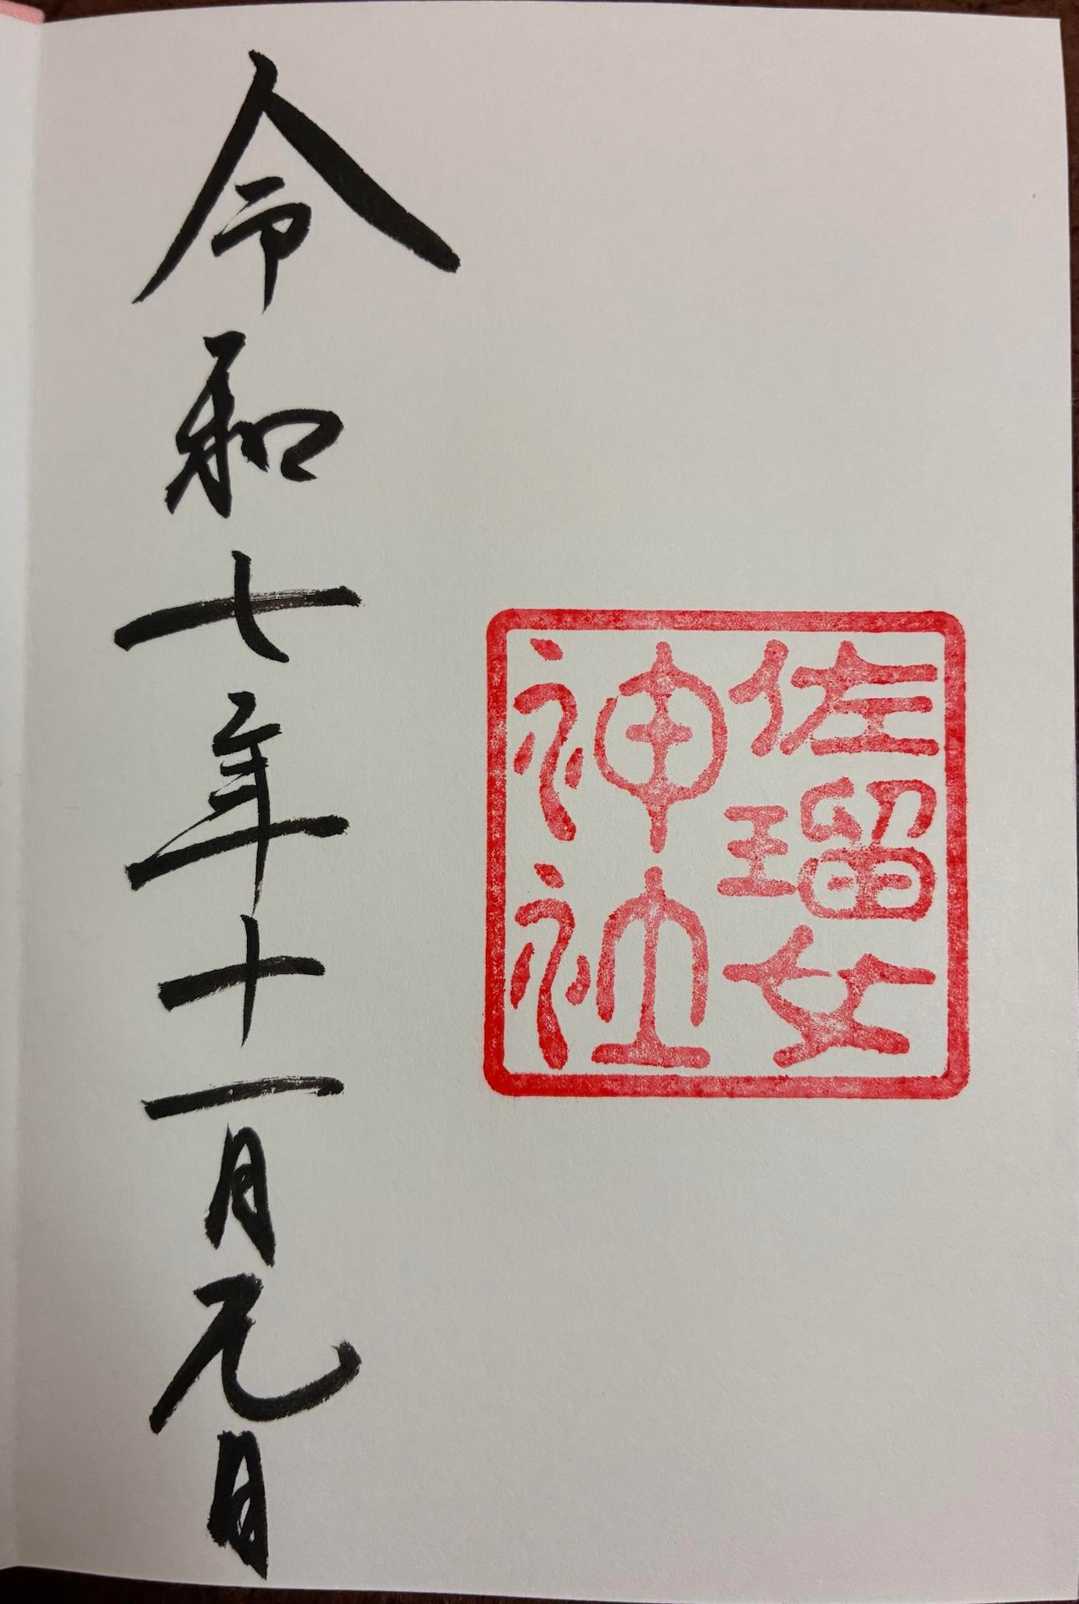 佐瑠女
神社
令和七年十一月元日